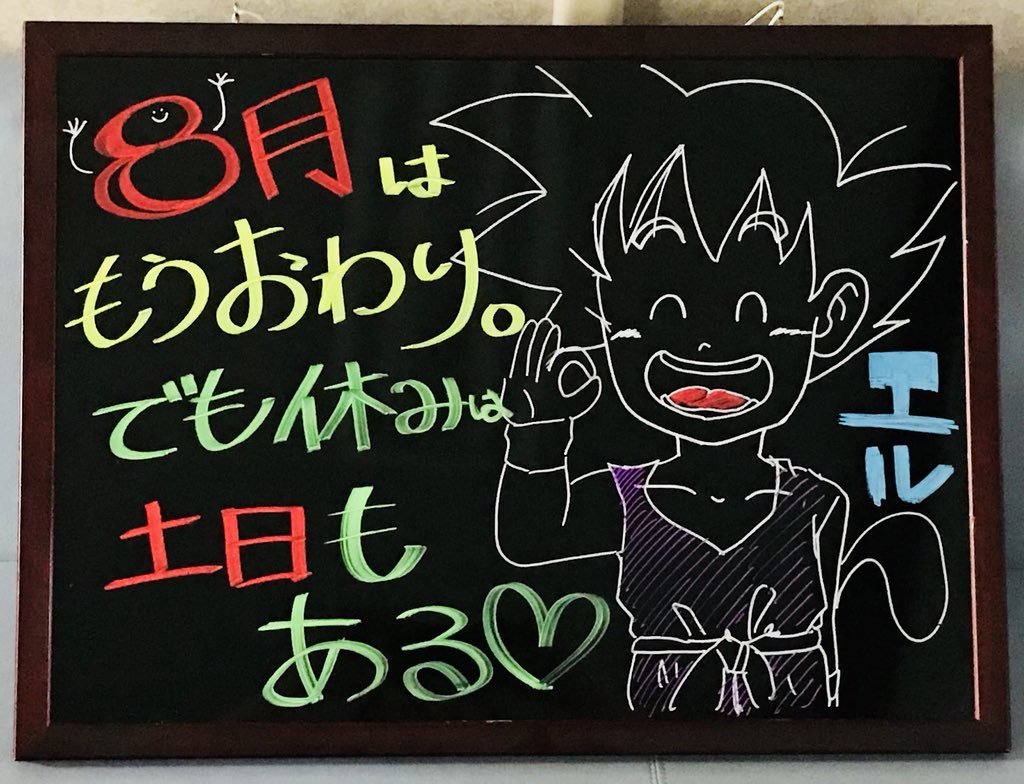 8月は
もうおわり。
でも休みは
土日も
ある♡
エル